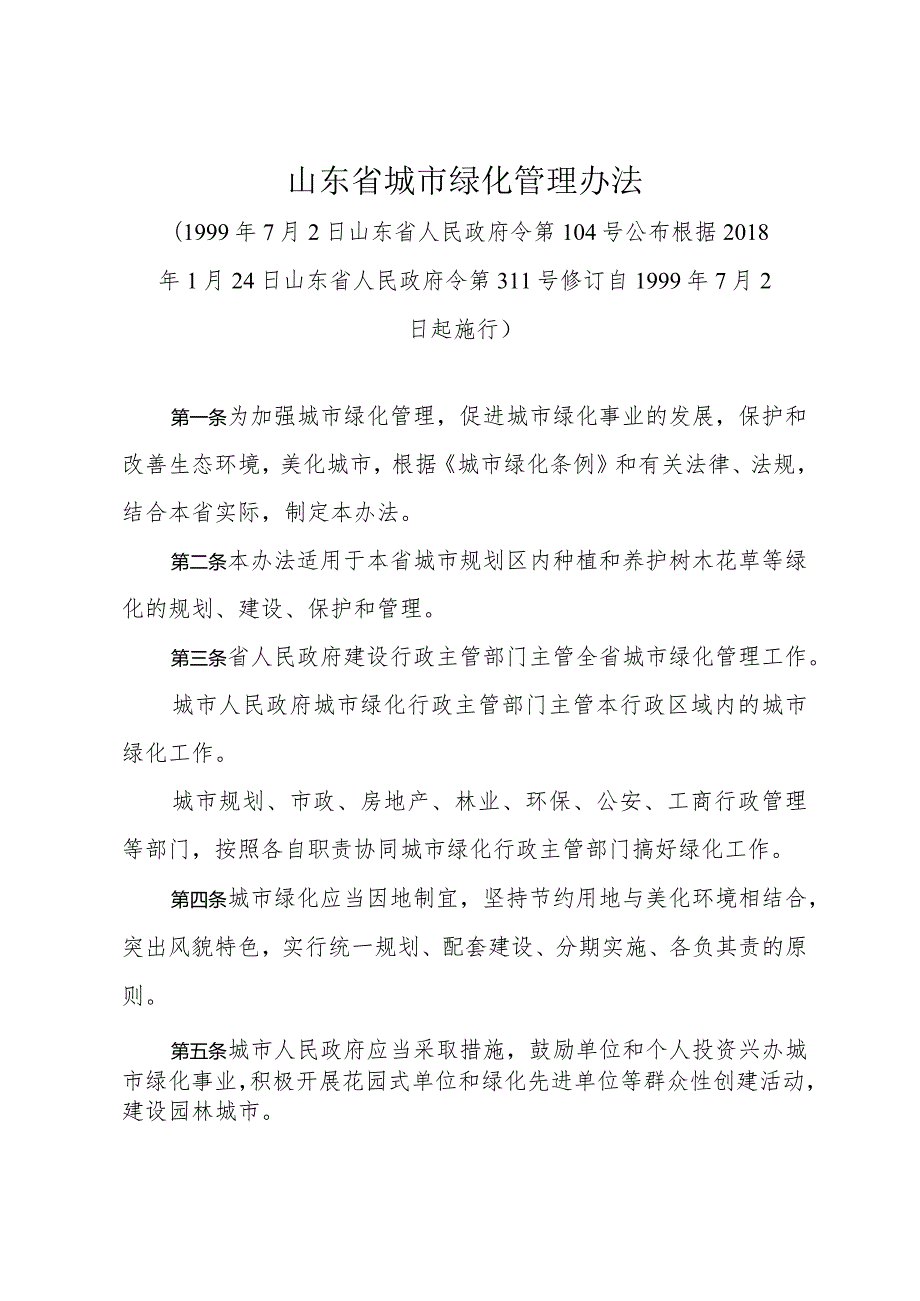 山东省城市绿化管理办法
(1999 年 7 月 2 日山东省人民政府令第 104 号公布根据 2018
年 1 月 24 日山东省人民政府令第 311 号修订自 1999 年 7 月 2
日起施行）
第一条为加强城市绿化管理，促进城市绿化事业的发展，保护和
改善生态环境，美化城市，根据《城市绿化条例》和有关法律、法规，
结合本省实际，制定本办法。
第二条本办法适用于本省城市规划区内种植和养护树木花草等绿
化的规划、建设、保护和管理。
第三条省人民政府建设行政主管部门主管全省城市绿化管理工作。
城市人民政府城市绿化行政主管部门主管本行政区域内的城市
绿化工作。
城市规划、市政、房地产、林业、环保、公安、工商行政管理
等部门，按照各自职责协同城市绿化行政主管部门搞好绿化工作。
第四条城市绿化应当因地制宜，坚持节约用地与美化环境相结合，
突出风貌特色，实行统一规划、配套建设、分期实施、各负其责的原
则。
第五条城市人民政府应当采取措施，鼓励单位和个人投资兴办城
市绿化事业，积极开展花园式单位和绿化先进单位等群众性创建活动，
建设园林城市。